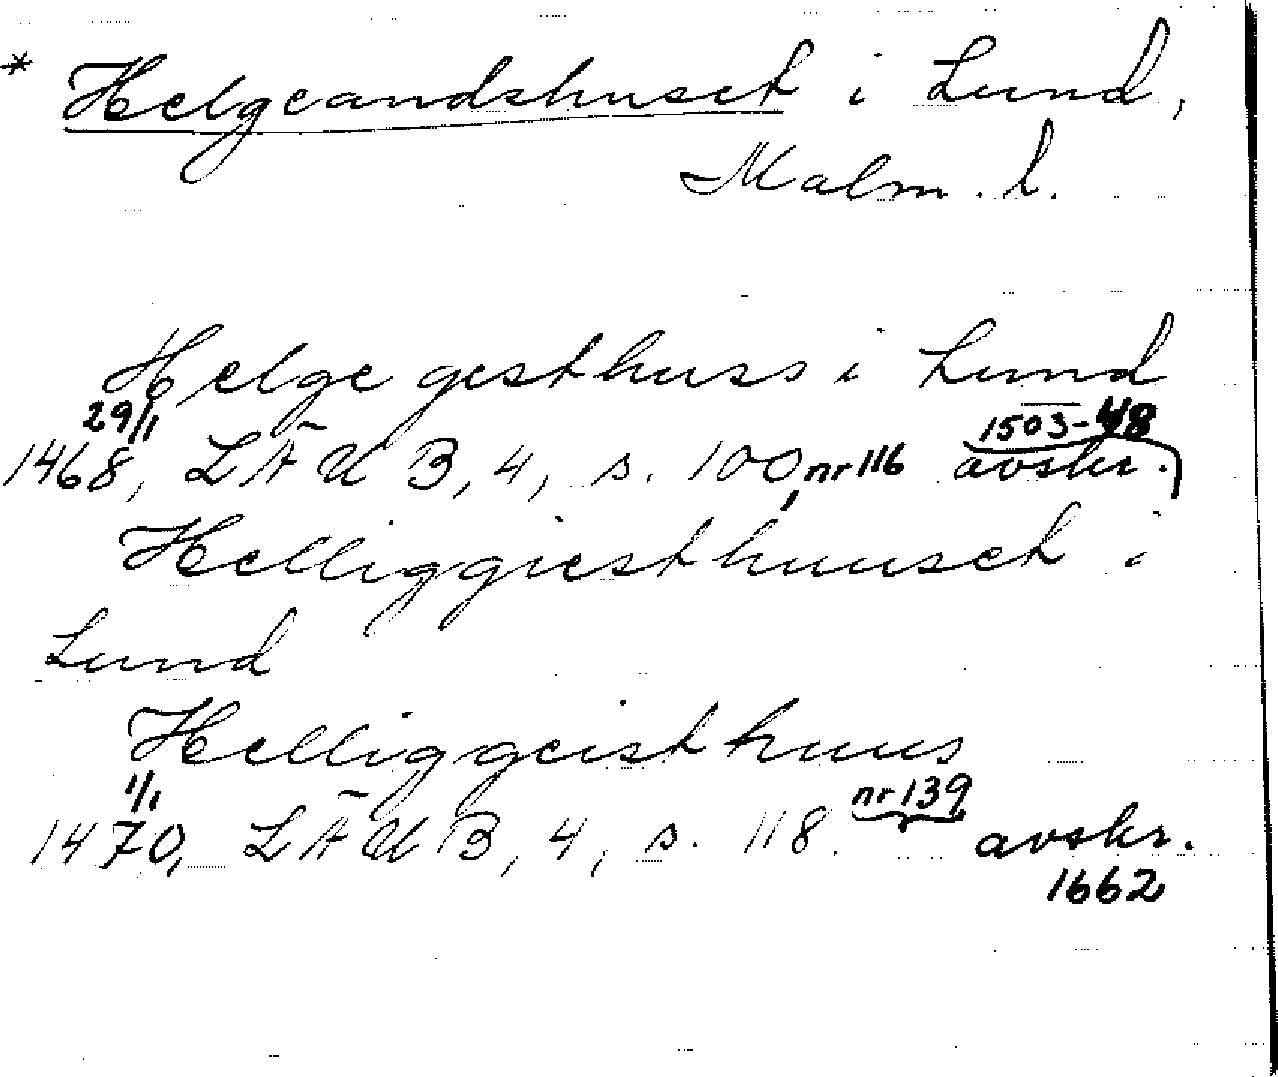 * Helgeandshuset i Lund,
Malm. l.
Helge gesthuss i Lund
29/1 1503-48
1468, LÄUB, 4, s. 100, nr 116 avskr.
Helliggiesthuuset i
Lund
Helliggeisthuus
1/1 nr 139
1470, LÄUB, 4, s. 118. avskr.
1662